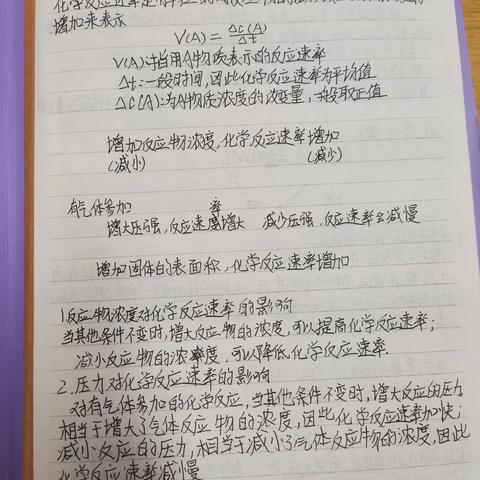 增加来表示
V(A) = Δc(A)/Δt
V(A):指用A物质表示的反应速率
Δt:一段时间,因此化学反应速率为平均值
Δc(A):为A物质浓度的改变量,一般取正值
增加反应物浓度,化学反应速率增加
(减小) (减少)
有气体参加 率
增大压强,反应速度增大 减少压强,反应速率会减慢
增加固体的表面称,化学反应速率增加
1.反应物浓度对化学反应速率的影响
当其他条件不变时,增大反应物的浓度,可以提高化学反应速率;
减小反应物的浓度,可以降低化学反应速率.
2.压力对化学反应速率的影响
对有气体参加的化学反应,当其他条件不变时,增大反应的压力
相当于增大了气体反应物的浓度,因此化学反应速率加快;
减小反应的压力,相当于减小了气体反应物的浓度,因此
化学反应速率减慢